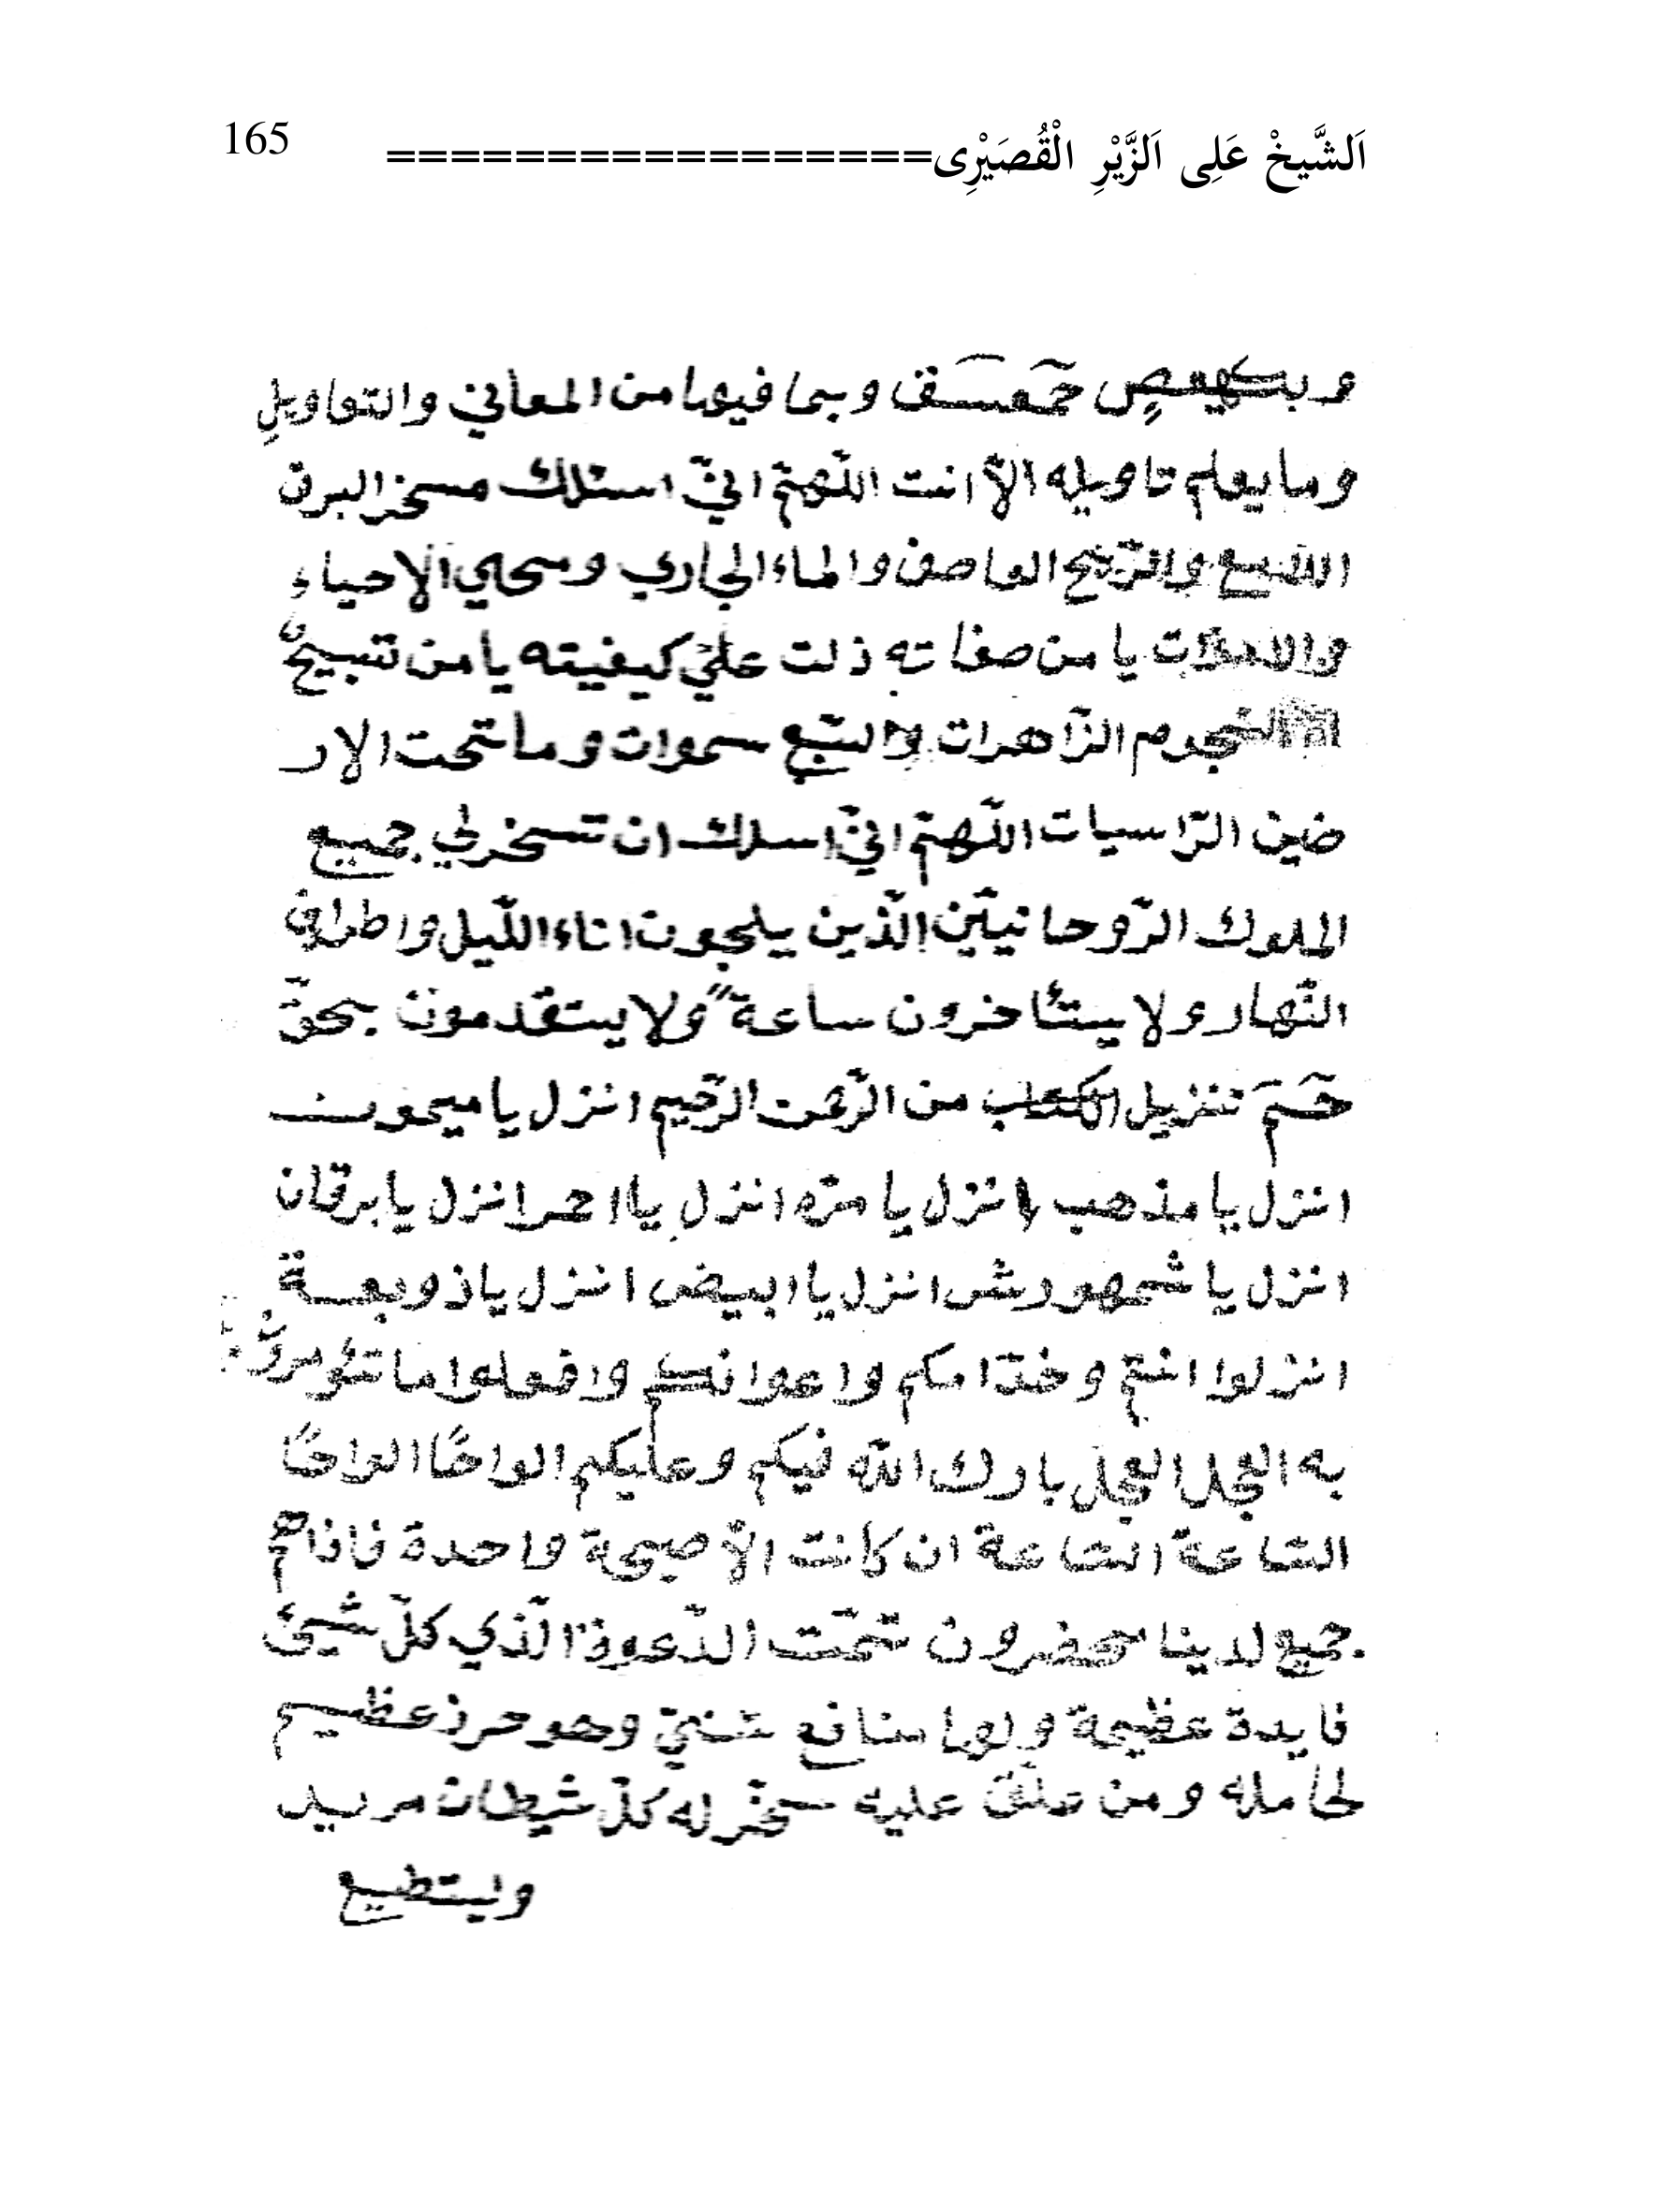 اَلشَّيخْ عَلِى اَلزَّيْرِ الْقُصَيْرِى================= 165
وبكهيعص حمعسق وبما فيها من المعاني والتواويلِ
وما يعلم تاويله الّا انت اللّهمّ انيّ اسئلك مسخر البرق
اللميع والرّيح العاصف والماء الجاري ومحيي الاحياء
والاموات يا من صفاته ذلت عليٰ كيفيته يا من تسبيح
النجوم الزّاهرات والسّبع سموات وما تحت الار
ضين الرّاسيات اللّهمّ انيّ اسلك ان تسخر لي جميع
الملوك الرّوحانيّين الّذين يلجون اناء اللّيل واطراف
النّهار ولا يستئاخرون ساعة ولا يستقدمون بحقّ
حٓمٓ تنزيل الكتاب من الرّحمن الرّحيم انزل يا ميمون
انزل يا مذهب انزل يا مرّه انزل يا احمر انزل يا برقان
انزل يا شمهورش انزل يا ابيض انزل يا ذوبعة
انزلوا انتم وخدّامكم واعوانكم وافعلوا ما تئومرون
به العجل العجل بارك اللّه فيكم وعليكم الواحًا الواحًا
السّاعة السّاعة ان كانت الّا صيحة واحدة فاذا هم
جميع لدينا محضرون تمّت الدّعوة الّذي كلّ شيئ
فايدة عظيمة ولها منافع شتيّ وهو حرز عظيم
لحامله ومن علّق عليه سخّر له كلّ شيطان مريد
ويستطيع